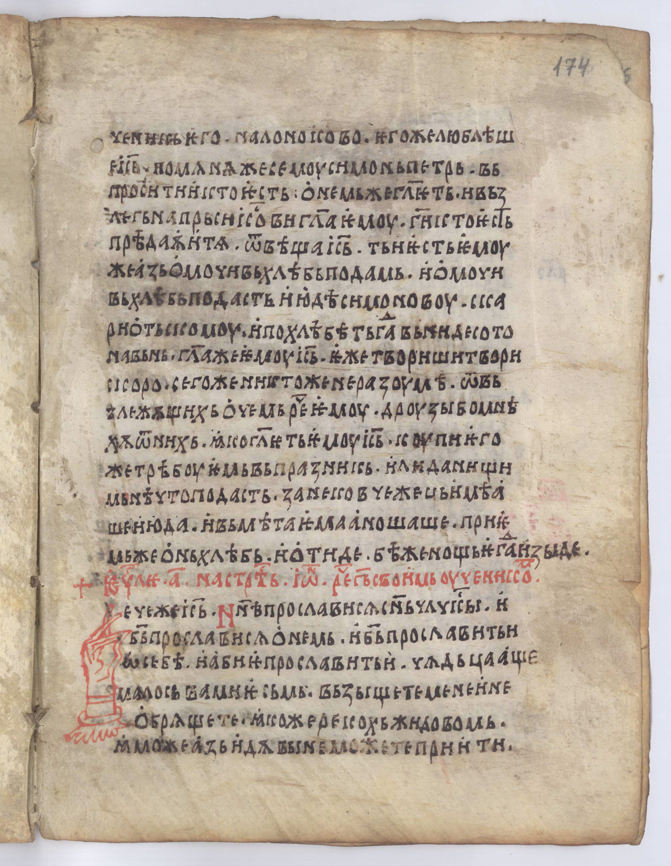 174
ученикь ѥго · на лоно ісво · ѥгоже люблѣш
е іс҃ь · поманѫ же семоу симонь петрь · въ
проситни кто ѥсть · ѡ немьже гл҃ѥть · и въз
легь на прьси ісо҃ви гл҃а ѥмоу · г҃и кто ѥс҃ть
прѣдаѧи тѧ · ѿвѣща іс҃ь · ть ѥсть ѥмоу
же азь омочивь хлѣбь подамь · и омочи
вь хлѣбь подасть июдѣ симоновоу · ска
риотьскомоу · и по хлѣбѣ тьгд҃а вьниде сото
на вь нь · гл҃а же ѥмоу іс҃ь · ѥже твориши твори
скоро · сего же никтоже не разоумѣ · ѿ въ
злежѧщихь о чемь ре҃ ѥмоу · дроузы бо мнѣ
хѫ ѿ нихь · ꙗко гл҃ѥть ѥмоу іс҃ь · коупи ѥго
же трѣбоуѥмь вь празникь · или да нищи
мь нѣчто подасть · зане ковчежець имѣа
ше июда · и вьмѣтаѥмаа ношаше · приѥ
мь же онь хлѣбь · и отиде · бѣ же нощь ѥгд҃а изыде ·
еу҃лѥ · а҃ · на стр҃ть · іѡ҃ · ре҃ гь҃ своимь оученико҃ ·
рече же іс҃ь · Нн҃ѣ прослависѧ сн҃ь чл҃чкы · и
б҃ь прослависѧ ѡ немь · и б҃ь прославить и
ѡ себѣ · и абиѥ прославить и · чѧдьца аще
мало сь вами ѥсьмь · възыщете мене и не
обрѧщете · ꙗкоже рекохь жидовомь ·
ꙗможе азь идѫ вы не можете приити ·